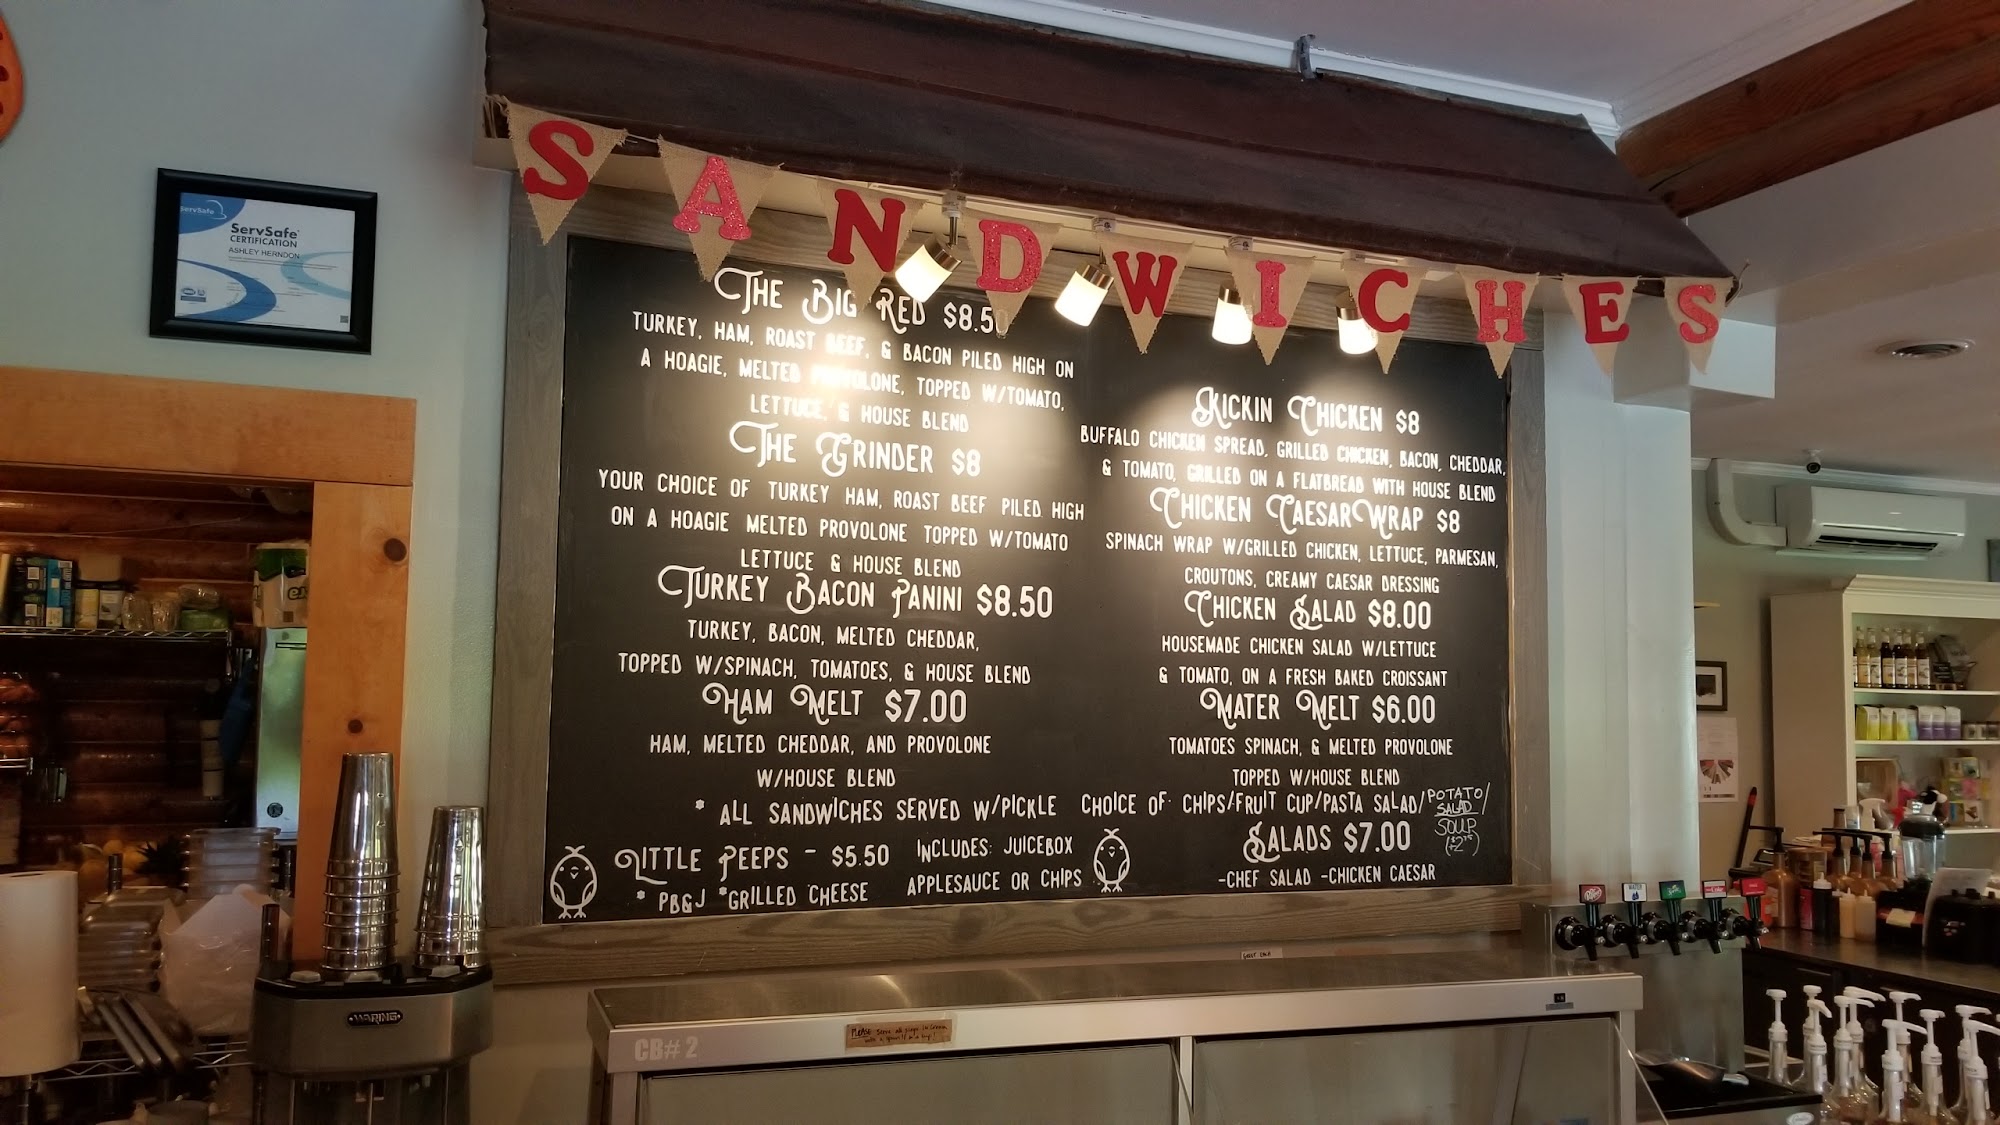 SANDWICHES
ServSafe
ServSafe
CERTIFICATION
ASHLEY HERNDON
THE BIG RED $8.50
TURKEY, HAM, ROAST BEEF, & BACON PILED HIGH ON
A HOAGIE, MELTED PROVOLONE, TOPPED W/TOMATO,
LETTUCE, & HOUSE BLEND
THE GRINDER $8
YOUR CHOICE OF TURKEY HAM, ROAST BEEF PILED HIGH
ON A HOAGIE MELTED PROVOLONE TOPPED W/TOMATO
LETTUCE & HOUSE BLEND
TURKEY BACON PANINI $8.50
TURKEY, BACON, MELTED CHEDDAR,
TOPPED W/SPINACH, TOMATOES, & HOUSE BLEND
HAM MELT $7.00
HAM, MELTED CHEDDAR, AND PROVOLONE
W/HOUSE BLEND
KICKIN CHICKEN $8
BUFFALO CHICKEN SPREAD, GRILLED CHICKEN, BACON, CHEDDAR,
& TOMATO, GRILLED ON A FLATBREAD WITH HOUSE BLEND
CHICKEN CAESAR WRAP $8
SPINACH WRAP W/GRILLED CHICKEN, LETTUCE, PARMESAN,
CROUTONS, CREAMY CAESAR DRESSING
CHICKEN SALAD $8.00
HOUSEMADE CHICKEN SALAD W/LETTUCE
& TOMATO, ON A FRESH BAKED CROISSANT
MATER MELT $6.00
TOMATOES SPINACH, & MELTED PROVOLONE
TOPPED W/HOUSE BLEND
* ALL SANDWICHES SERVED W/PICKLE CHOICE OF: CHIPS/FRUIT CUP/PASTA SALAD/POTATO SALAD/
SOUP
LITTLE PEEPS - $5.50
* PB&J *GRILLED CHEESE
INCLUDES: JUICEBOX
APPLESAUCE OR CHIPS
SALADS $7.00
-CHEF SALAD -CHICKEN CAESAR
WARING
CB# 2